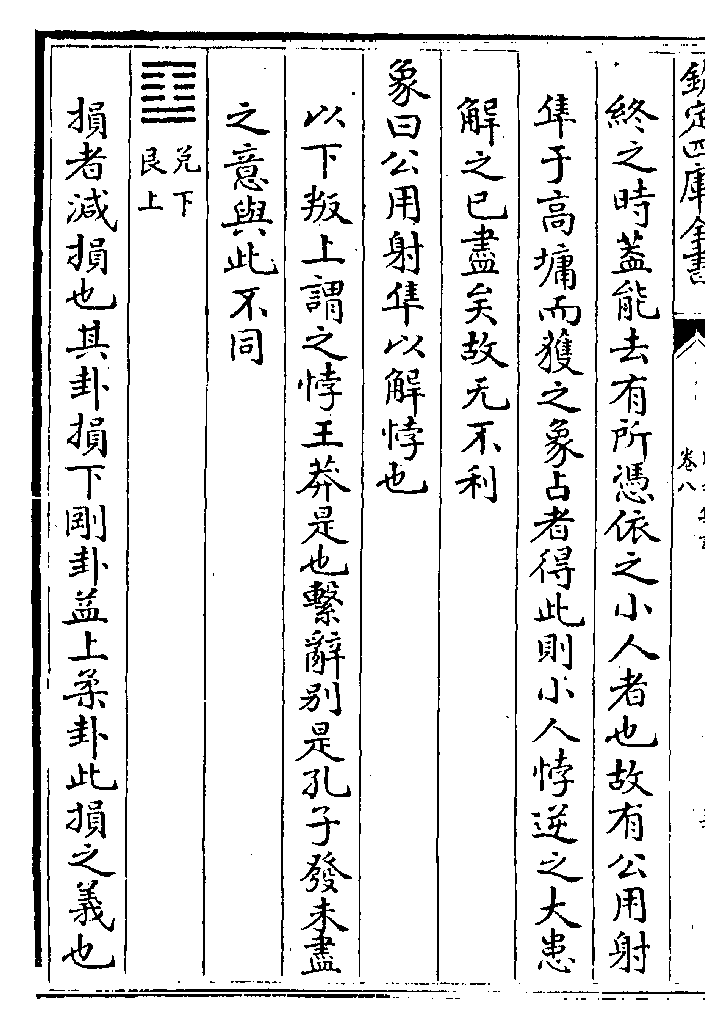 欽定四庫全書
卷八
終之時蓋能去有所憑依之小人者也故有公用射
隼于高墉而獲之象占者得此則小人悖逆之大患
解之已盡矣故无不利
象曰公用射隼以解悖也
以下叛上謂之悖王莽是也繫辭别是孔子發未盡
之意與此不同
䷨
兌下
艮上
損者減損也其卦損下剛卦益上柔卦此損之義也